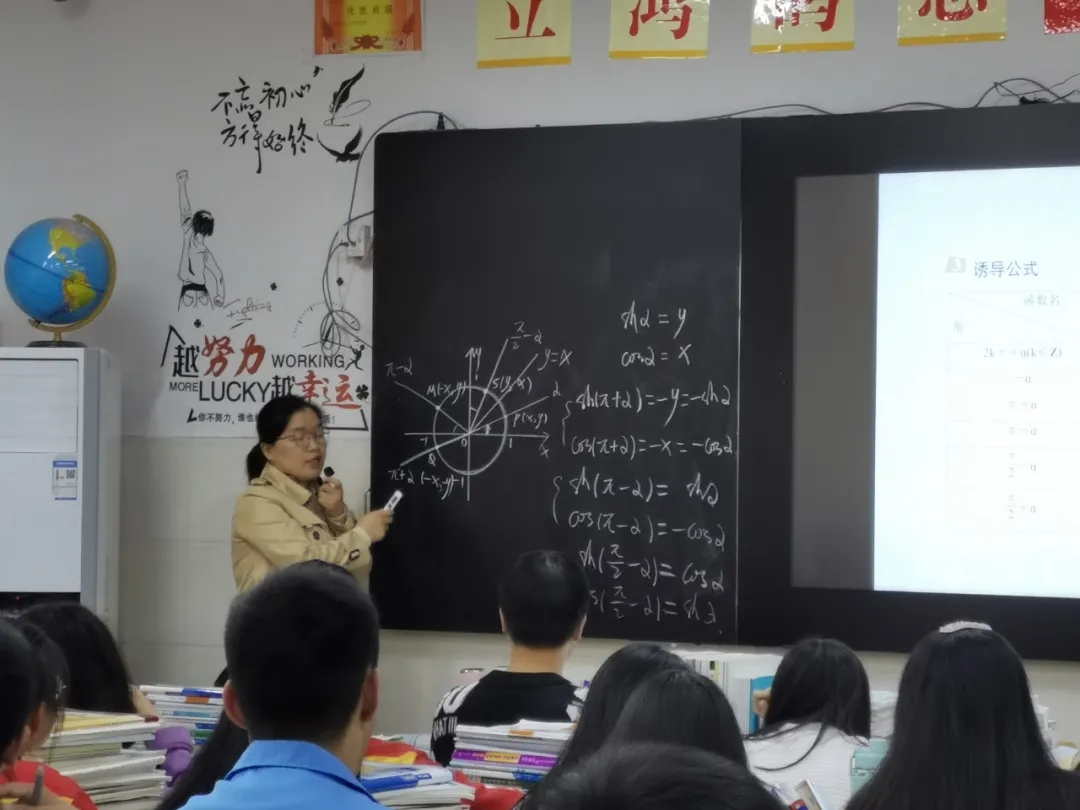 优胜班级
立鸿鹄志
不忘初心
方得始终
fighting
越努力 WORKING
MORE LUCKY 越幸运
你不努力,谁也
π/2-α
y
y=x
π-α
M(-x,y)
S(y,x)
α
P(x,y)
-1
0
1
x
Q
π+α
(-x,-y)
-1
sinα=y
cosα=x
sin(π+α)=-y=-sinα
cos(π+α)=-x=-cosα
sin(π-α)=sinα
cos(π-α)=-cosα
sin(π/2-α)=cosα
(π/2-α)=sinα
3 诱导公式
函数名
角
2kπ+α(k∈Z)
-α
π+α
π-α
π/2-α
π/2+α